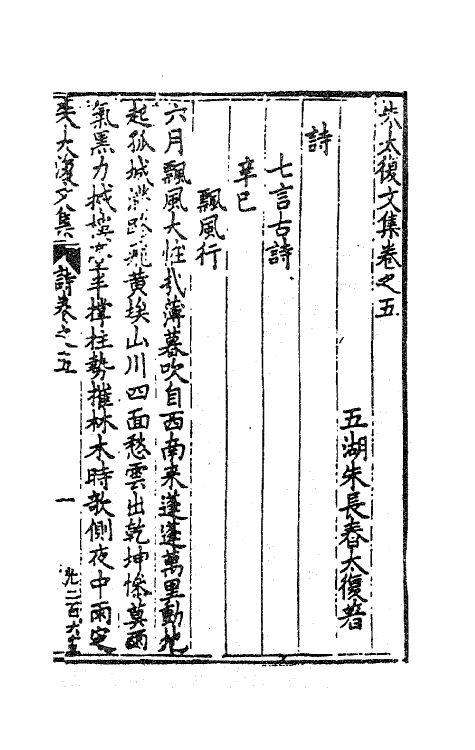 朱太復文集卷之五
五湖朱長春太復著
詩
七言古詩
辛巳
飄風行
六月飄風大恠哉薄暮吹自西南來蓬蓬萬里動地
起孤城潑飛黃埃山川四面愁雲出乾坤慘莫
氣黑力撼半撑柱勢摧林木時欹側夜中雨定
朱太復文集 詩卷之五 一